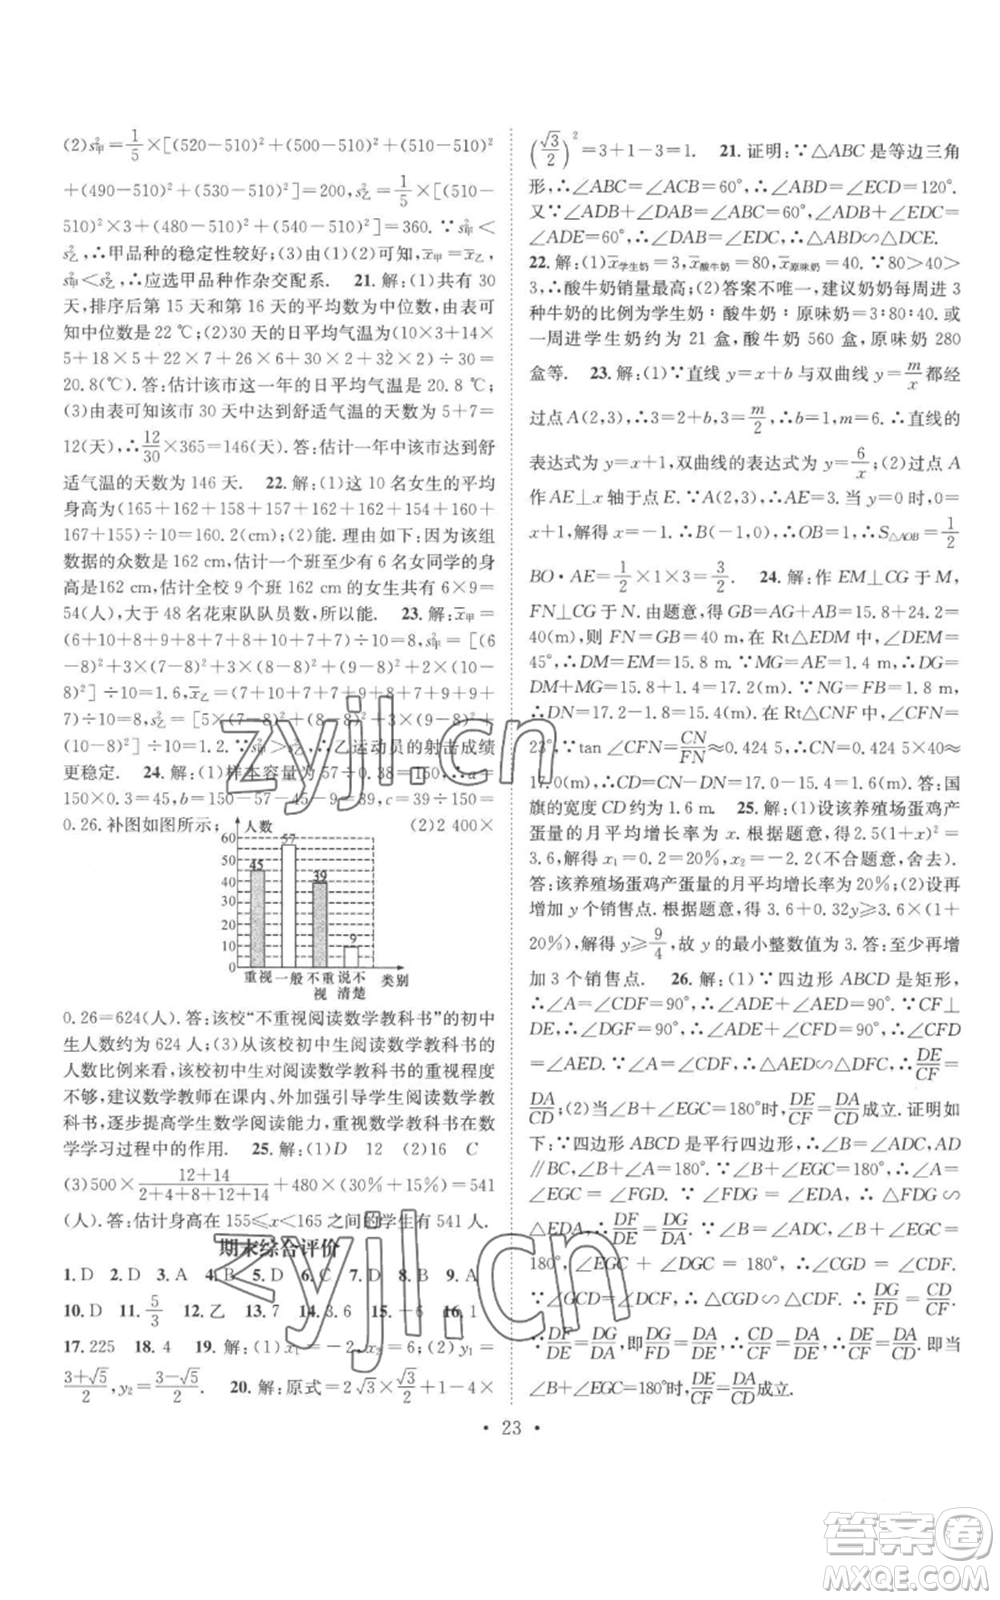 (2)s²甲=1/5×[(520-510)²+(500-510)²
+(490-510)²+(530-510)²]=200,s²乙=1/5×[(510-
510)²×3+(480-510)²+(540-510)²]=360.∵s²甲<
s²乙,∴甲品种的稳定性较好;(3)由(1)(2)可知,x̄甲=x̄乙,
s²甲<s²乙,∴应选甲品种作杂交配系. 21.解:(1)共有30
天,排序后第15天和第16天的平均数为中位数,由表可
知中位数为22℃;(2)30天的日平均气温为(10×3+14×
5+18×5+22×7+26×6+30×2+32×2)÷30=
20.8(℃).答:估计该市这一年的日平均气温为20.8℃;
(3)由表可知该市30天中达到舒适气温的天数为5+7=
12(天),∴12/30×365=146(天).答:估计一年中该市达到舒
适气温的天数为146天. 22.解:(1)这10名女生的平均
身高为(165+162+158+157+162+162+154+160+
167+155)÷10=160.2(cm);(2)能.理由如下:由于该组
数据的众数是162 cm,估计一个班至少有6名女同学的身
高是162 cm,估计全校9个班162 cm的女生共有6×9=
54(人),大于48名花束队队员数,所以能. 23.解:x̄甲=
(6+10+8+9+8+7+8+10+7+7)÷10=8,s²甲=[(6
-8)²+(10-8)²+(8-8)²+…+(7-
8)²]÷10=1.6,x̄乙=
÷10=8,s²乙=[5×(7-8)²+
(10-8)²]÷10=1.2.∵s²甲>s²乙,∴乙运动员的射击成绩
更稳定. 24.解:(1)样本容量为57÷0.38=150,∴a=
150×0.3=45,b=150-57-45-9=39,c=39÷150=
0.26.补图如图所示; (2)2 400×
人数
60
50
40
30
20
10
0
45
57
39
9
重视 一般 不重视 说不清楚 类别
0.26=624(人).答:该校“不重视阅读数学教科书”的初中
生人数约为624人;(3)从该校初中生阅读数学教科书的
人数比例来看,该校初中生对阅读数学教科书的重视程度
不够,建议数学教师在课内、外加强引导学生阅读数学教
科书,逐步提高学生数学阅读能力,重视数学教科书在数
学学习过程中的作用. 25.解:(1)D 12 (2)16 C
(3)500×(12+14)/(2+4+8+12+14)+480×(30%+15%)=541
(人).答:估计身高在155≤x<165之间的学生有541人.
期末综合评价
1.D 2.D 3.A 4.B 5.D 6.C 7.B 8.B 9.A
10.D 11.5/3 12.乙 13.7 14.3.6 15. 6 16.1
17.225 18.4 19.解:(1)x₁=-1,x₂=6;(2)y₁=
(3+√5)/2,y₂=(3-√5)/2. 20.解:原式=2√3×√3/2+1-4×
(√3/2)²=3+1-3=1. 21.证明:∵△ABC是等边三角
形,∴∠ABC=∠ACB=60°,∴∠ABD=∠ECD=120°.
又∵∠ADB+∠DAB=∠ABC=60°,∠ADB+∠EDC=
∠ADE=60°,∴∠DAB=∠EDC,∴△ABD∽△DCE.
22.解:(1)x̄学生奶=3,x̄酸牛奶=80,x̄原味奶=40.∵80>40>
3,∴酸牛奶销量最高;(2)答案不唯一,建议奶奶每周进3
种牛奶的比例为学生奶∶酸牛奶∶原味奶=3:80:40.或
一周进学生奶约为21盒,酸牛奶560盒,原味奶280
盒等. 23.解:(1)∵直线y=x+b与双曲线y=m/x都经
过点A(2,3),∴3=2+b,3=m/2,∴b=1,m=6.∴直线的
表达式为y=x+1,双曲线的表达式为y=6/x;(2)过点A
作AE⊥x轴于点E.∵A(2,3),∴AE=3.当y=0时,0=
x+1,解得x=-1.∴B(-1,0),∴OB=1;∴S△AOB=1/2
BO·AE=1/2×1×3=3/2. 24.解:作EM⊥CG于M,
FN⊥CG于N.由题意,得GB=AG+AB=15.8+24.2=
40(m),则FN=GB=40(m).在Rt△EDM中,∠DEM=
45°,∴DM=EM=15.8 m.∵MG=AE=1.4 m,∴DG=
DM+MG=15.8+1.4=17.2(m).∵NG=FB=1.8 m,
∴DN=17.2-1.8=15.4(m).在Rt△CNF中,∠CFN=
23°,∵tan∠CFN=CN/FN≈0.424 5,∴CN=0.424 5×40≈
17.0(m).∴CD=CN-DN=17.0-15.4=1.6(m).答:国
旗的宽度CD约为1.6 m. 25.解:(1)设该养殖场蛋鸡产
蛋量的月平均增长率为x.根据题意,得2.5(1+x)²=
3.6,解得x₁=0.2=20%,x₂=-2.2(不合题意,舍去).
答:该养殖场蛋鸡产蛋量的月平均增长率为20%;(2)设再
增加y个销售点.根据题意,得3.6+0.32y≥3.6×(1+
20%),解得y≥9/4,故y的最小整数值为3.答:至少再增
加3个销售点. 26.解:(1)∵四边形ABCD是矩形,
∴∠A=∠CDF=90°,∴∠ADE+∠AED=90°.∵CF⊥
DE,∴∠DGF=90°,∴∠ADE+∠CFD=90°,∴∠CFD
=∠AED.∵∠A=∠CDF,∴△AED∽△DFC,∴DE/CF=
DA/CD;(2)当∠B+∠EGC=180°时,DE/CF=DA/CD成立.证明如
下:∵四边形ABCD是平行四边形,∴∠B=∠ADC,AD
∥BC,∴∠B+∠A=180°.∵∠B+∠EGC=180°,∴∠A
=∠EGC=∠FGD.∵∠FDG=∠EDA,∴△FDG∽
△EDA,∴DF/DE=DG/DA.∵∠B=∠ADC,∠B+∠EGC=
180°,∠EGC=∠DGF,∴∠CGD=∠CDF.
∵∠GCD=∠DCF,∴△CGD∽△CDF,∴DG/FD=CD/CF.
∵DF/DE=DG/DA,即DG/FD=DA/DE,∴CD/CF=DA/DE,∴DE/CF=DA/CD.即当
∠B+∠EGC=180°时,DE/CF=DA/CD成立.
• 23 •
zyjl.cn
zyjl.cn
答案卷
MXQE.COM